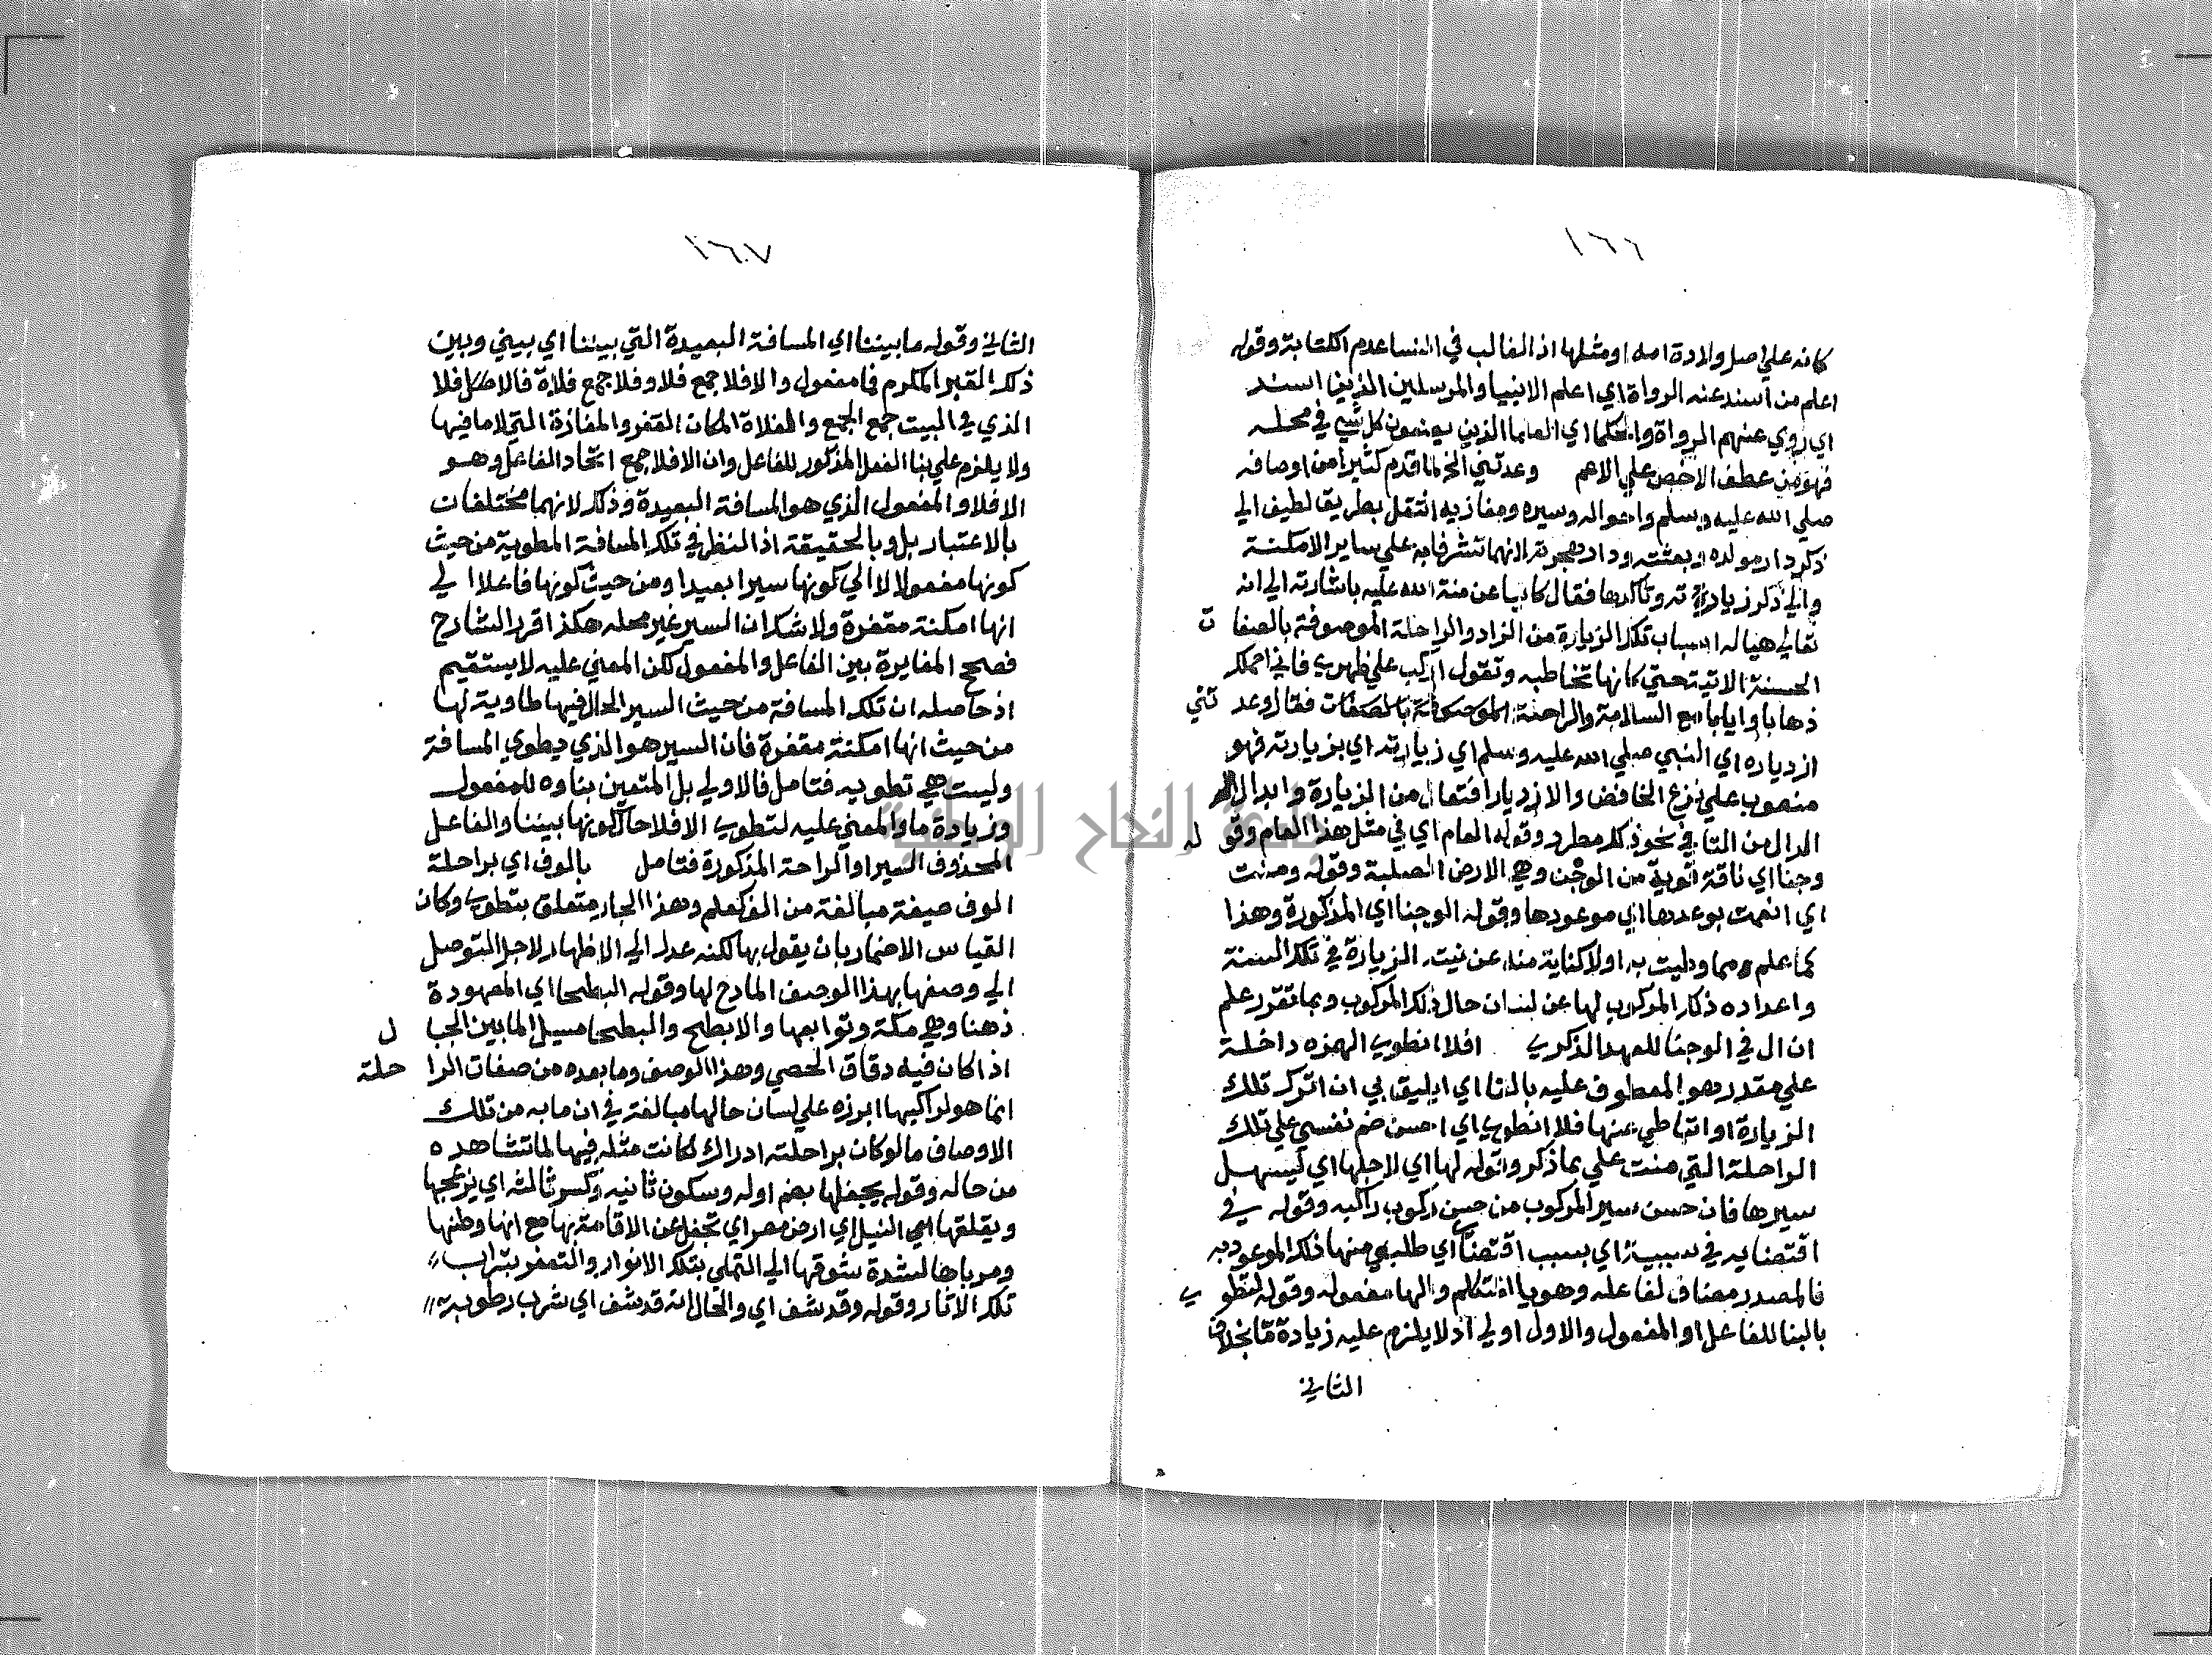 ١٦٦
كانه علي اصل ولادة امه او مثلها اذ الغالب في النسا عدم الكتابة وقوله
اعلم من اسند عنه الرواة اي اعلم الانبيا والمرسلين الذين اسند
اي روي عنهم الرواة والحكما اي العلما الذين يضعون كل شي في محله
فهو من عطف الاخص علي الاعم وعدتني الخ لما قدم كثيرا من اوصافه
صلي الله عليه وسلم واحواله وسيره ومغازيه انتقل بطريق لطيف الي
ذكر دار مولده وبعثته ودار هجرته لانهما تشرفا به علي ساير الامكنة
والي ذكر زيارته وتاكدها فقال كانيا عن منة الله عليه باشارته الي انه
تعالي هيا له اسباب تلك الزيارة من الزاد والراحلة الموصوفة بالصفات
الحسنة الاتية حتي كانها تخاطبه وتقول اركب علي ظهري فاني احملك
ذهابا وايابا مع السلامة والراحة الموصوفة بالصفات فقال وعدتني
ازدياره اي النبي صلي الله عليه وسلم اي زيارته اي بزيارته فهو
منصوب علي نزع الخافض والازديار افتعال من الزيارة وابدال
الدال من التا في نحو ذلك مطرد وقوله العام اي في مثل هذا العام وقوله
وجنا اي ناقة قوية من الوجن وهي الارض الصلبة وقوله ومنت
اي انعمت بوعدها اي موعودها وقوله الوجنا اي المذكورة وهذا
كما علم مما وطيت به اولا كناية منه عن نيته الزيارة في تلك السنة
واعداده ذلك المركوب لها عن لسان حال ذلك المركوب وبما تقرر علم
ان ال في الوجنا للعهد الذكري افلا انطوي الهمزه داخلة
علي مقدر هو المعطوف عليه بالفا اي ايليق بي ان اترك تلك
الزيارة او اتباطي عنها فلا انطوي اي احسن ضم نفسي علي تلك
الراحلة التي منت علي بما ذكر وقوله لها اي لاجلها اي ليسهل
سيرها فان حسن سير المركوب من حسن ركوب راكبه وقوله في
اقتضايه في سببية اي بسبب اقتضا اي طلبي منها ذلك الموعود به
فالمصدر مضاف لفاعله وهو يا المتكلم والها مفعوله وقوله لتطوي
بالبنا للفاعل او المفعول والاول اولي اذ لا يلزم عليه زيادة ما بخلاف
الثاني
١٦٧
الثاني وقوله ما بيننا اي المسافة البعيدة التي بيننا اي بيني وبين
ذلك القبر المكرم فما مفعول والافلا جمع فلا وفلا جمع فلاة فالاصل فلا
الذي في البيت جمع الجمع والفلاة المكان القفر والمفازة التي لا ما فيها
ولا يلزم علي بنا الفعل المذكور للفاعل وان الافلا جمع اتحاد الفاعل وهو
الافلا والمفعول الذي هو المسافة البعيدة وذلك لانهما مختلفات
بالاعتبار بل وبالحقيقة اذ النظر في تلك المسافة المطوية من حيث
كونها مفعولا لا الي كونها سيرا بعيدا ومن حيث كونها فاعلا الي
انها امكنة مقفرة ولا شك ان السير غير محله هكذا قرر الشارح
فصحح المغايرة بين الفاعل والمفعول لكن المعني عليه لا يستقيم
اذ حاصله ان تلك المسافة من حيث السير الحال فيها طاوية لها
من حيث انها امكنة مقفرة فان السير هو الذي يطوي المسافة
وليست هي تطويه فتامل فالاولي بل المتعين بناوه للمفعول
وزيادة ما والمعني عليه لتطوي الافلا حال كونها بيننا والفاعل
المحذوف السير او الراحة المذكورة فتامل بالوف اي براحلة
الوف صيغة مبالغة من الف كعلم وهذا الجار متعلق بتطوي وكان
القياس الاضمار بان يقول بها لكنه عدل الي الاظهار لاجل التوصل
الي وصفها بهذا الوصف المادح لها وقوله البطحا اي المعهودة
ذهنا وهي مكة وتوابعها والابطح والبطحا مسيل الما بين الجبال
اذا كان فيه دقاق الحصي وهذا الوصف وما بعده من صفات الراحلة
انما هو لراكبها ابرزه علي لسان حالها مبالغة في ان ما به من تلك
الاوصاف ما لو كان براحلته ادراك لكانت مثله فيها لما تشاهده
من حاله وقوله يجفلها بضم اوله وسكون ثانيه وكسر ثالثه اي يزعجها
ويقلقها اي النيل اي ارض مصر اي تجفل عن الاقامة بها مع انها وطنها
ومرباها لشدة شوقها الي التملي بتلك الانوار والتعفر بتراب
تلك الاثار وقوله وقد شف اي والحال انه قد شف اي شرب رطوبة
جامعة النجاح الوطنية